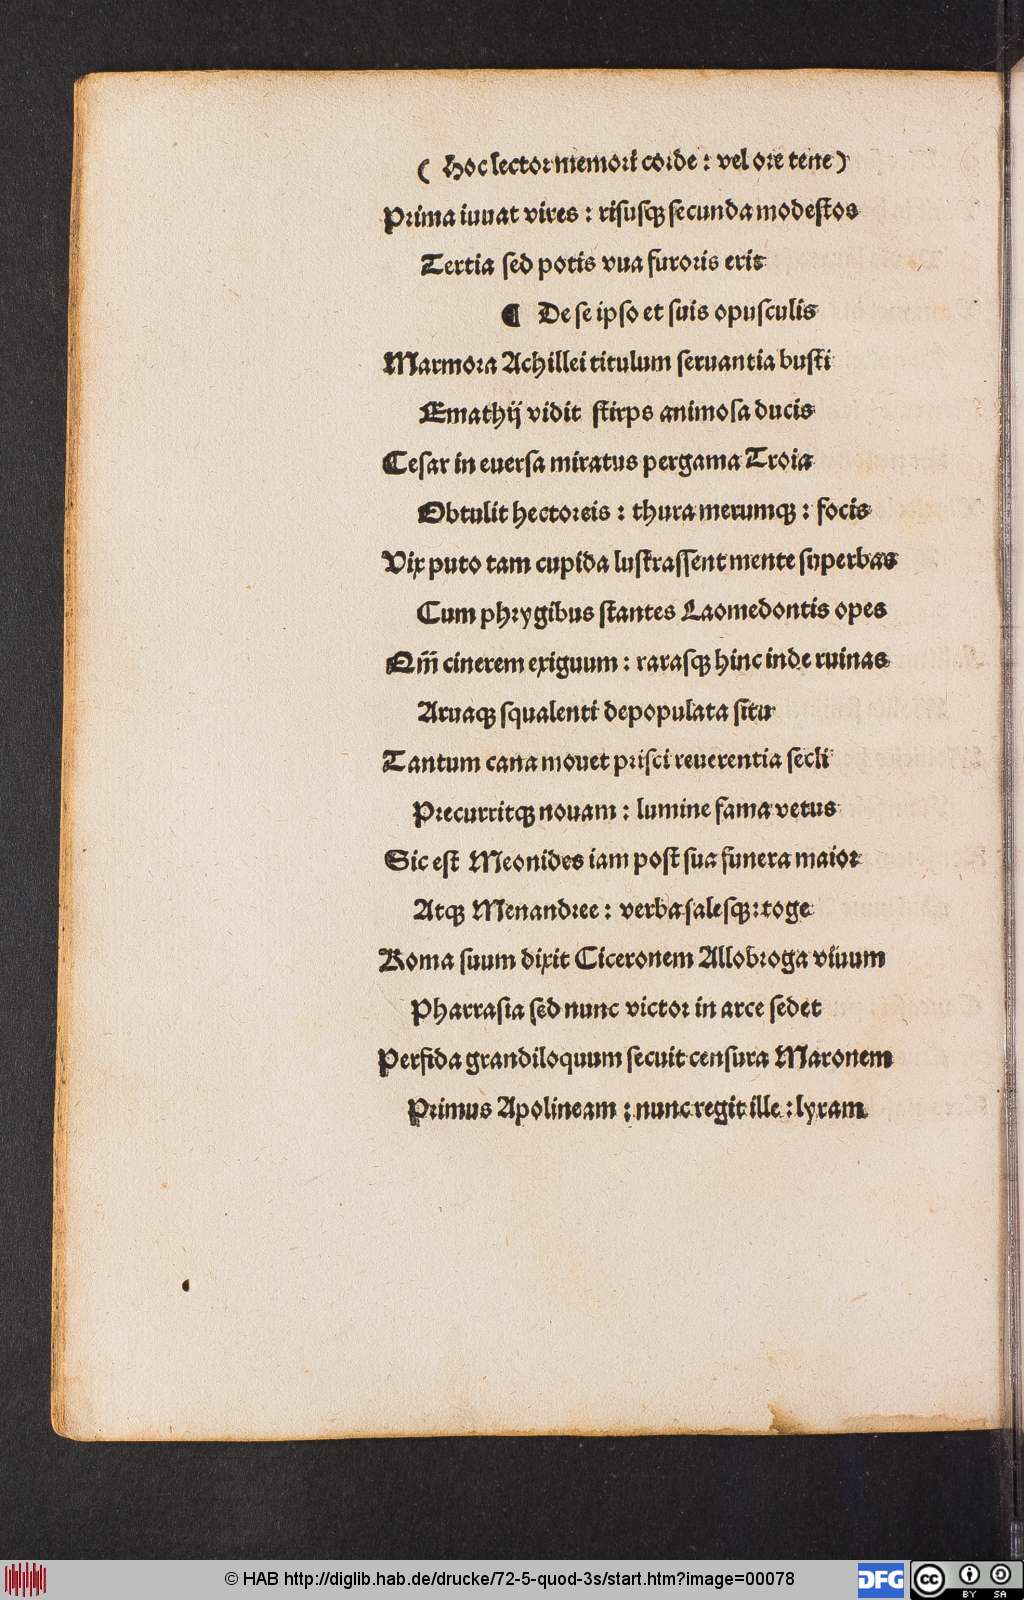 ( Hoc lector memori corde : vel ore tene )
Prima iuuat vires : risusqꝫ secunda modestos
Tertia sed potis vua furoris erit
¶ De se ipso et suis opusculis
Marmora Achillei titulum seruantia busti
Emathij vidit stirps animosa ducis
Cesar in euersa miratus pergama Troia
Obtulit hectoreis : thura merumqꝫ : focis
Vix puto tam cupida lustrassent mente superbas
Cum phrygibus stantes Laomedontis opes
Qm̅ cinerem exiguum : rarasqꝫ hinc inde ruinas
Aruaqꝫ squalenti depopulata situ
Tantum cana mouet prisci reuerentia secli
Precurritqꝫ nouam : lumine fama vetus
Sic est Meonides iam post sua funera maior
Atqꝫ Menandree : verba salesqꝫ : toge
Roma suum dixit Ciceronem Allobroga viuum
Pharrasia sed nunc victor in arce sedet
Perfida grandiloquum secuit censura Maronem
Primus Apolineam : nunc regit ille : lyram
© HAB http://diglib.hab.de/drucke/72-5-quod-3s/start.htm?image=00078
DFG
cc BY SA